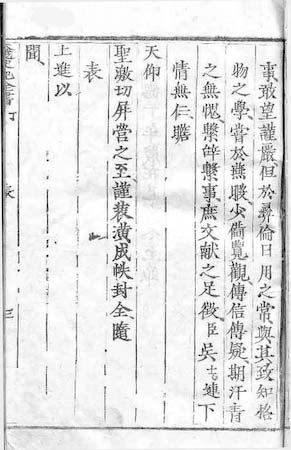 事敢望謹嚴但於彝倫日用之常與其致知格
物之學嘗於燕暇少備覽觀傳信傳疑期汗青
之無愧繫辝繫事庶文献之足徵臣吳士連下
情無任瞻
天仰
聖激切屏營之至謹裝潢成帙封全隨
表
上進以
聞
表
三